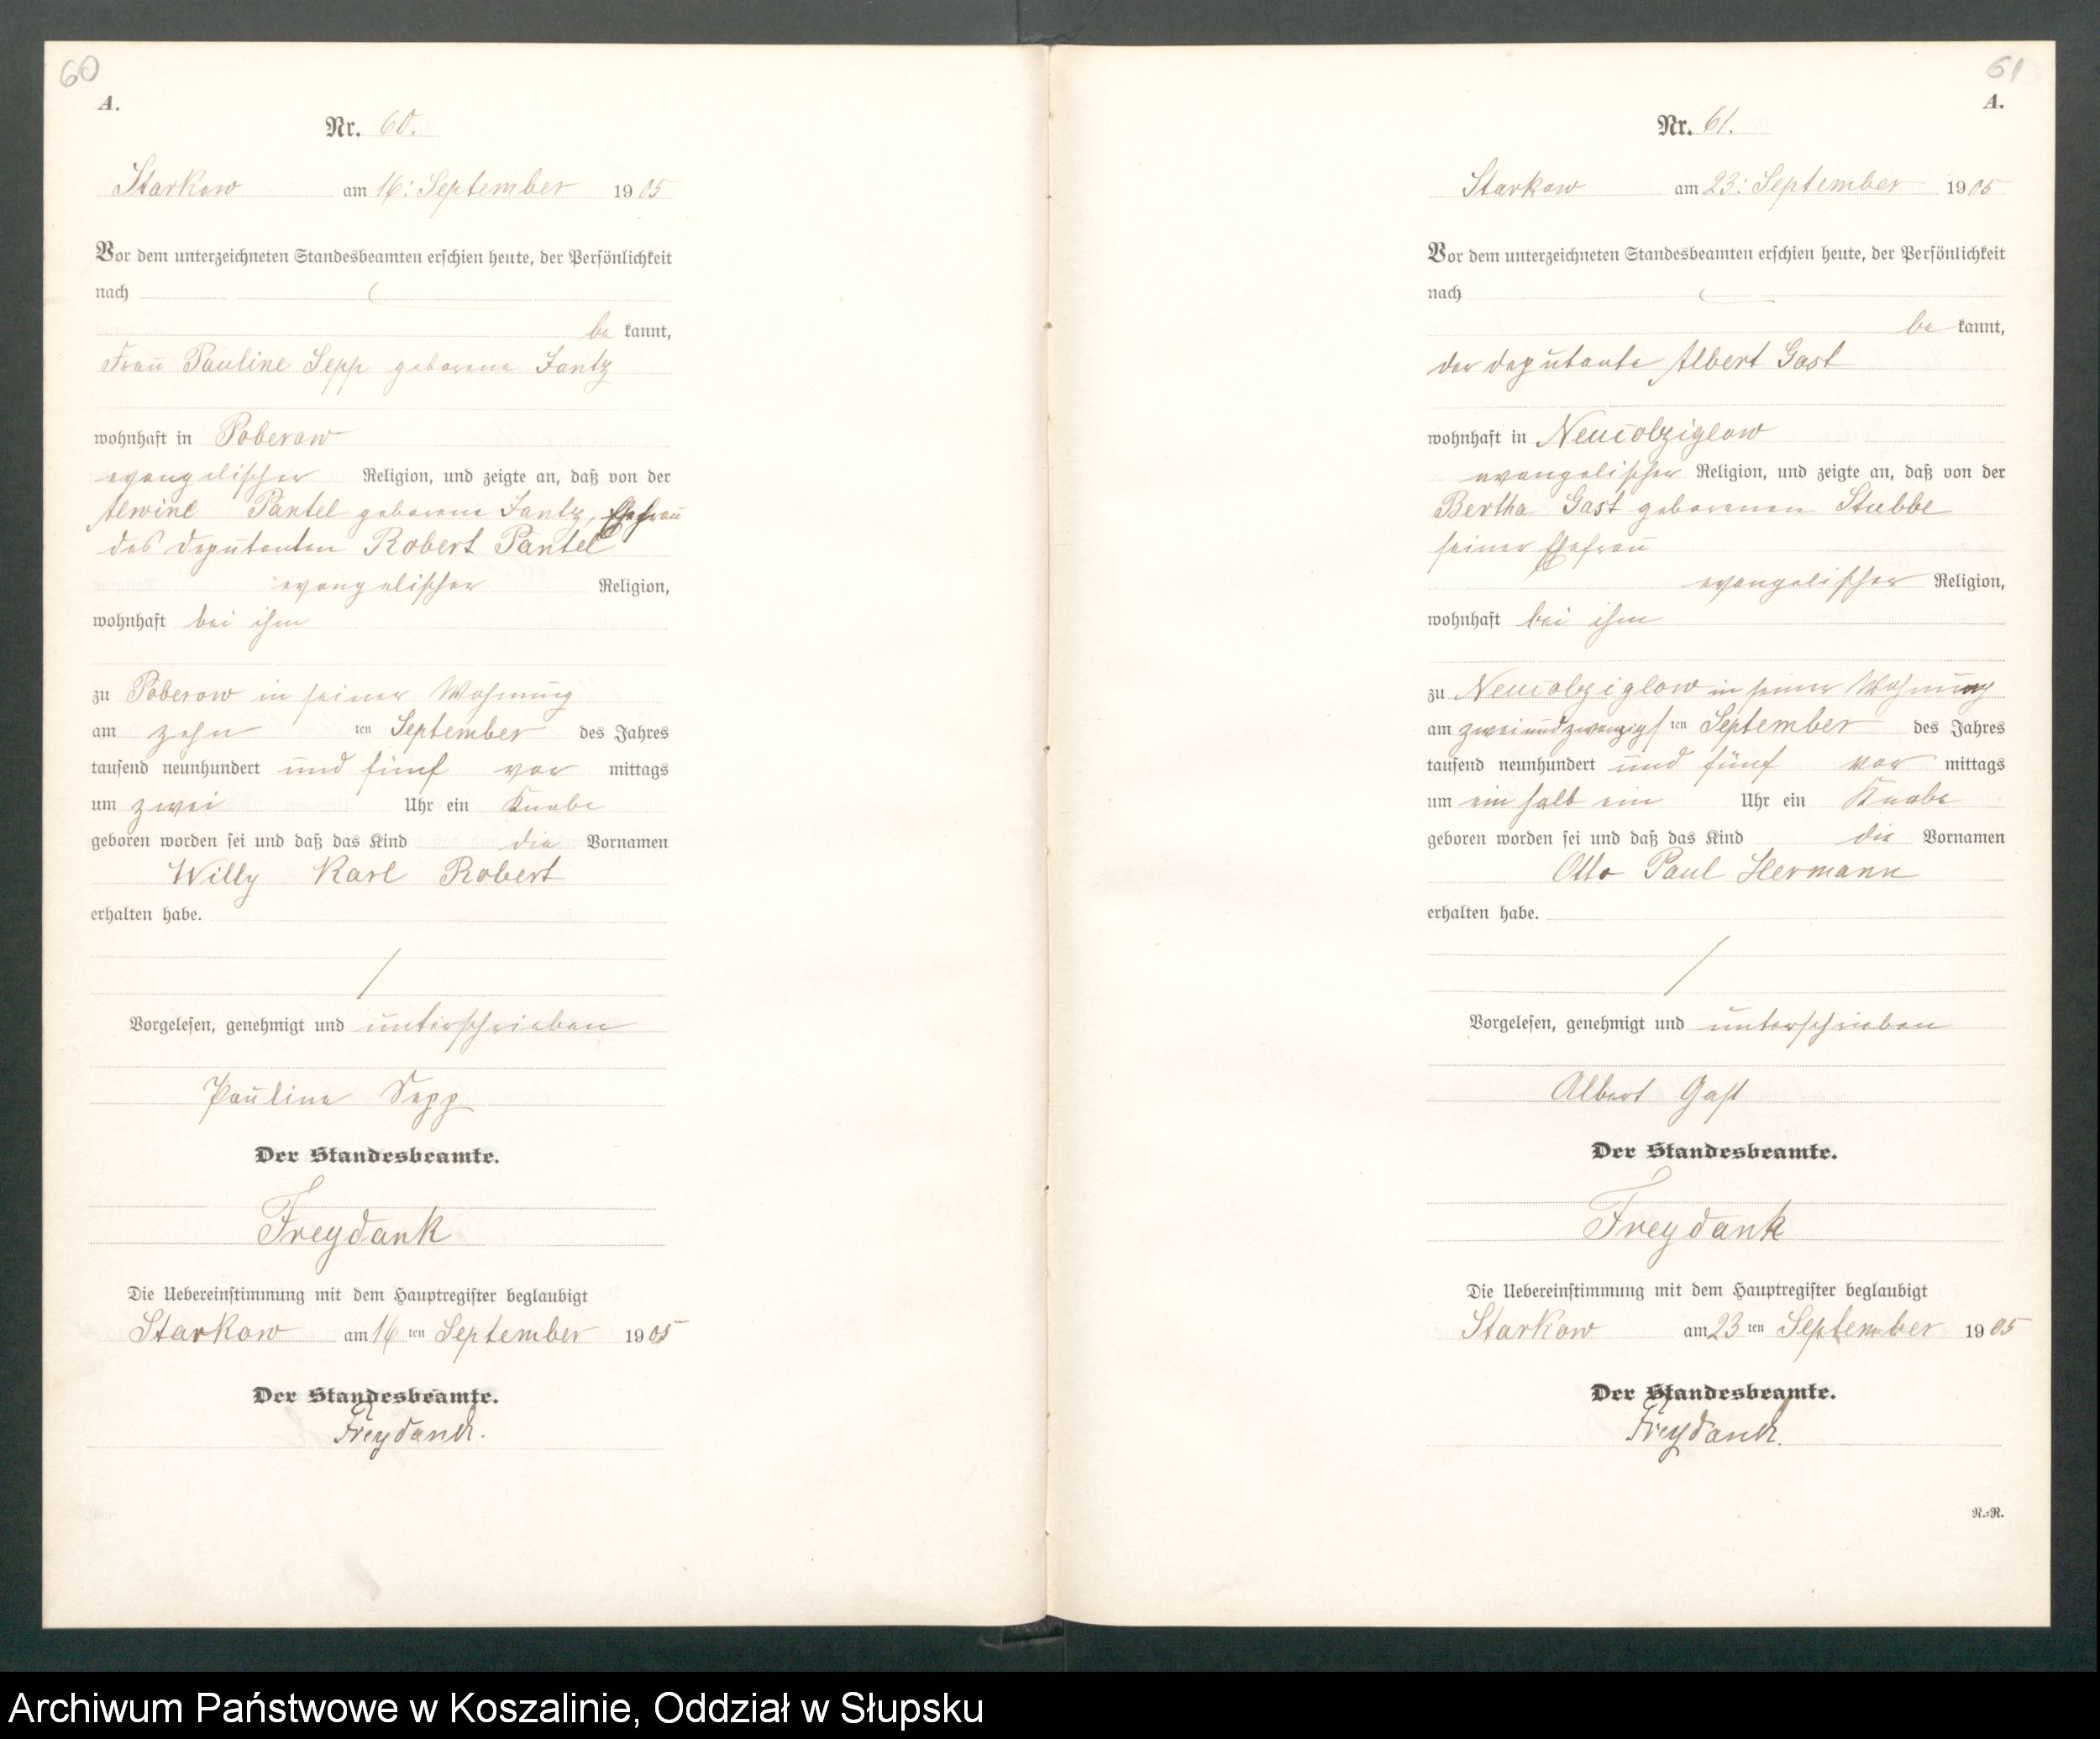 60
A.
Nr. 60.
Starkow am 16: September 1905
Vor dem unterzeichneten Standesbeamten erschien heute, der Persönlichkeit
nach
be kannt,
Frau Pauline Sepp geborene Jantz
wohnhaft in Poberow
evangelischer Religion, und zeigte an, daß von der
Alwine Pantel geborene Jantz, Ehefrau
des deputanten Robert Pantel
evangelischer Religion,
wohnhaft bei ihm
zu Poberow in seiner Wohnung
am zehn ten September des Jahres
tausend neunhundert und fünf vor mittags
um zwei Uhr ein Knabe
geboren worden sei und daß das Kind die Vornamen
Willy Karl Robert
erhalten habe.
Vorgelesen, genehmigt und unterschrieben
Pauline Sepp
Der Standesbeamte.
Freydank
Die Uebereinstimmung mit dem Hauptregister beglaubigt
Starkow am 16 ten September 1905
Der Standesbeamte.
Freydank.
61
A.
Nr. 61.
Starkow am 23: September 1905
Vor dem unterzeichneten Standesbeamten erschien heute, der Persönlichkeit
nach
be kannt,
der deputante Albert Gast
wohnhaft in Neucolziglow
evangelischer Religion, und zeigte an, daß von der
Bertha Gast geborenen Stubbe
seiner Ehefrau
evangelischer Religion,
wohnhaft bei ihm
zu Neucolziglow in seiner Wohnung
am zweiundzwanzigs ten September des Jahres
tausend neunhundert und fünf vor mittags
um ein halb ein Uhr ein Knabe
geboren worden sei und daß das Kind die Vornamen
Otto Paul Hermann
erhalten habe.
Vorgelesen, genehmigt und unterschrieben
Albert Gast
Der Standesbeamte.
Freydank
Die Uebereinstimmung mit dem Hauptregister beglaubigt
Starkow am 23 ten September 1905
Der Standesbeamte.
Freydank.
R.=R.
Archiwum Państwowe w Koszalinie, Oddział w Słupsku